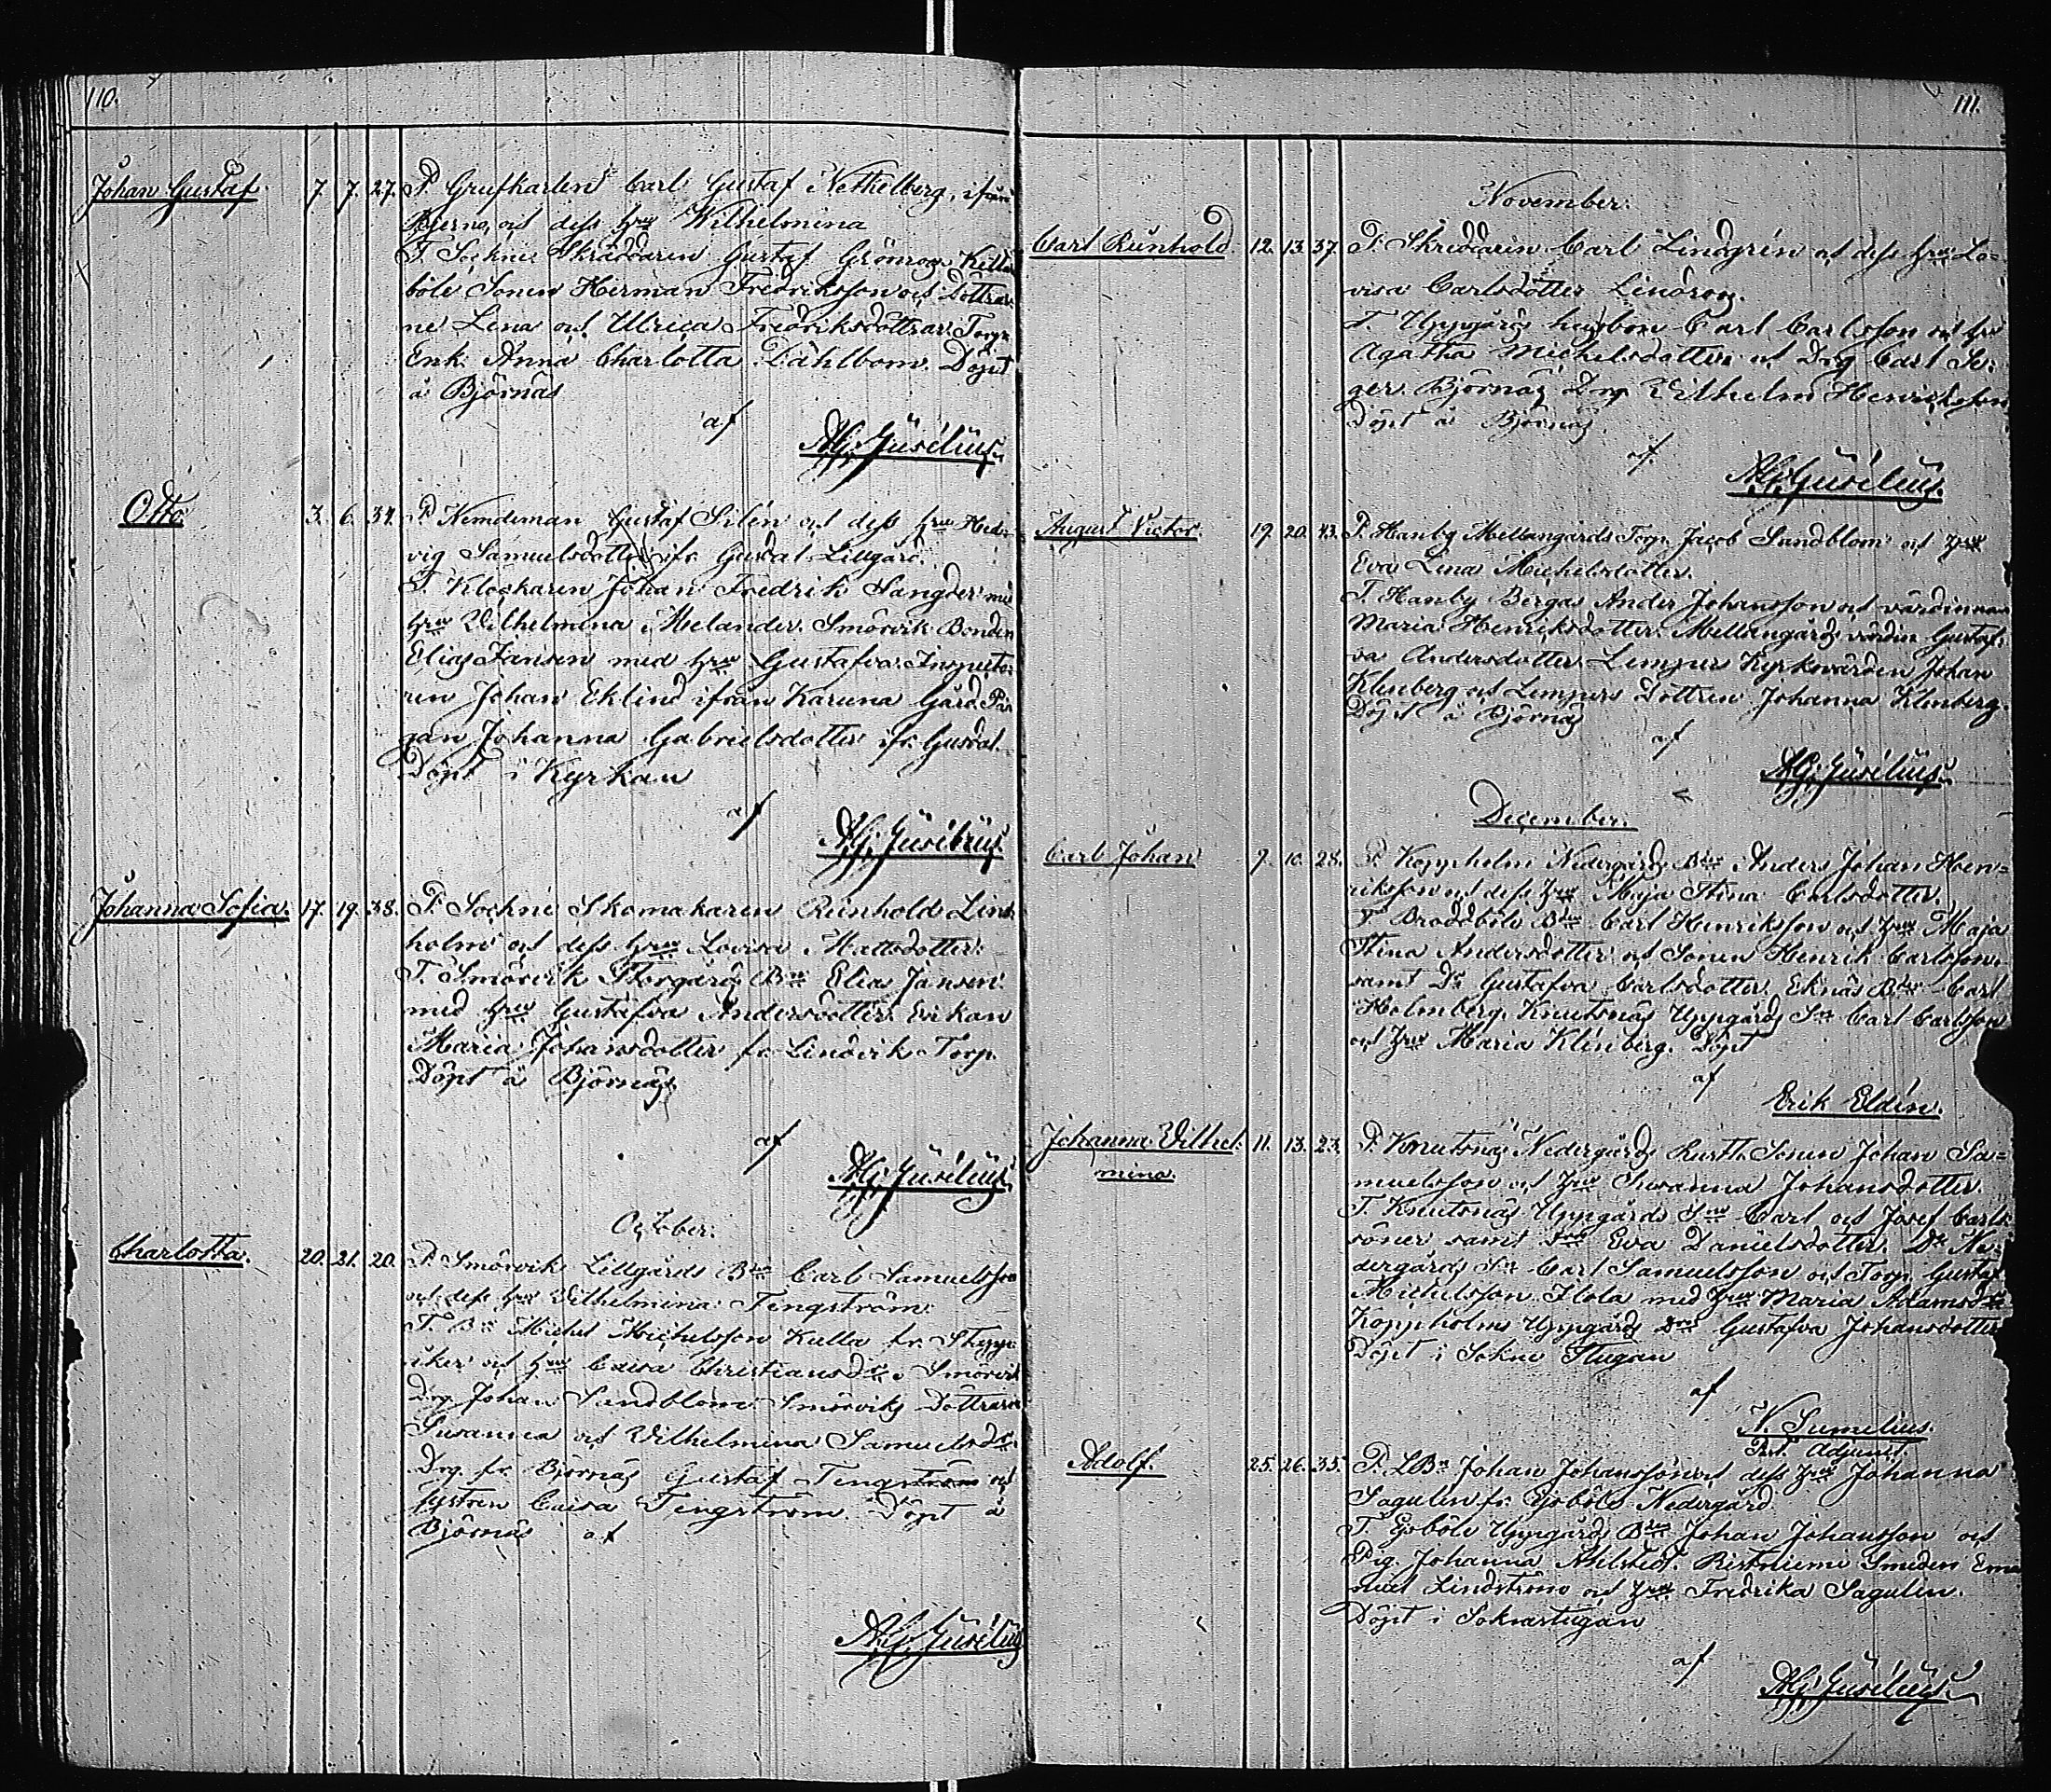 110.
Johan Gustaf. 7. 7. 27. P. Grufkarlen Carl Gustaf Nethelberg, ifrån
och dess hru Wilhelmina
T. Sockne Skräddaren Gustaf Grönroos Kella
böle Sonen Herman Fredriksson och Döttrar
ne Lena och Ulrica Fredriksdöttrar. Torp
Enk. Anna Charlotta Dahlbom. Döpt
å Björnäs
af
Otto. 3. 6. 34. P. Nemdeman Gustaf Silén och dess hru Hed
vig Samuelsdotter ifr. Gusdal Lillgård.
T. Klockaren Johan Fredrik Sangder med
hru Vilhelmina Melander. Smörvik Bonden
Elias Jansen med hru Gustafva. Inspecto
ren Johan Eklind ifrån Karuna Gård. Pi
gan Johanna Gabrielsdotter ifr. Gusdal.
Döpt i Kyrkan
af
Johanna Sofia. 17. 19. 38. P. Sockne Skomakaren Reinhold Lind
holm och dess hru Lovisa Mattsdotter.
T. Smörvik Storgårds Bn Elias Jansen
med hru Gustafva Andersdotter. Enkan
Maria Johansdotter fr. Lindvik Torp.
Döpt å Björnäs.
af
October.
Charlotta. 20. 21. 20. P. Smörvik Lillgårds Bdn Carl Samuelsson
och dess hru Vilhelmina Tengström.
T. Bn Michel Michelsson Kulla fr. Skepp
åker och hru Caisa Christiansdr. Smörvik
Drg Johan Sandblom Smörviks Döttrarne
Susanna och Vilhelmina Samuelsdr.
Drg. fr. Björnäs Gustaf Tengström och
systren Caisa Tengström. Döpt å
Björnäs af
111.
November.
Carl Reinhold. 12. 13. 37. P. Skreddaren Carl Lindgrén och dess hru Lo-
visa Carlsdotter Lindroos.
T. Uppgårds husbon Carl Carlsson och hru
Agatha Michelsdotter och Drg Carl Se-
ger. Björnäs Drg Vilhelm Henriksson
Döpt å Björnäs.
af
August Victor. 19. 20. 43. P. Hanby Mellangårds Torp. Jacob Sandblom och hru
Eva Lena Michelsdotter.
T. Hanby Bergas Ander Johansson och värdinnan
Maria Henriksdotter. Mellangårds värdin Gustaf-
va Andersdotter Lempers Kyrkovärden Johan
Klinberg och Lempers Dottren Johanna Klinberg.
Döpt å Björnäs
af
December.
Carl Johan 9. 10. 28. P. Koppholm Nedergårds Bdn Anders Johan Hen-
riksson och dess hru Maja Stina Carlsdotter.
T. Broddböle Bdn Carl Henriksson och hru Maja
Stina Andersdotter och Sonen Henrik Carlsson.
samt Dr Gustafva Carlsdotter. Eknäs Bdn Carl
Holmberg. Knutsnäs Uppgårds Sn Carl Carlsson
och hru Maria Klinberg. Döpt
af
Erik Eldén.
Johanna Vilhel- 11. 13. 23. P. Knutsnäs Nedergårds Rustth. Sonen Johan Sa-
mina. muelsson och hru Susanna Johansdotter.
T. Knutsnäs Uppgårds Sn Carl och Josef Carls-
söner samt Eva Danielsdotter. Do Ne-
dergårds Sn Carl Samuelsson och Torp. Gustaf
Michelsson Flota med hru Maria Adamsdr
Koppholms Uppgårds Gustafva Johansdotter
Döpt i Sokne Stugan
af
N. Sumelius.
Past. Adjunct.
Adolf. 25. 26. 35. P. LBn Johan Johansson och dess hru Johanna
Sagulin fr. Gjoböle Nedergård
T. Gjoböle Uppgårds Bdn Johan Johansson och
Pig. Johanna Ahlstedt. Ristniemi Smeden Ema
nuel Lindström och hru Fredrika Sagulin.
Döpt i Soknestugan
af